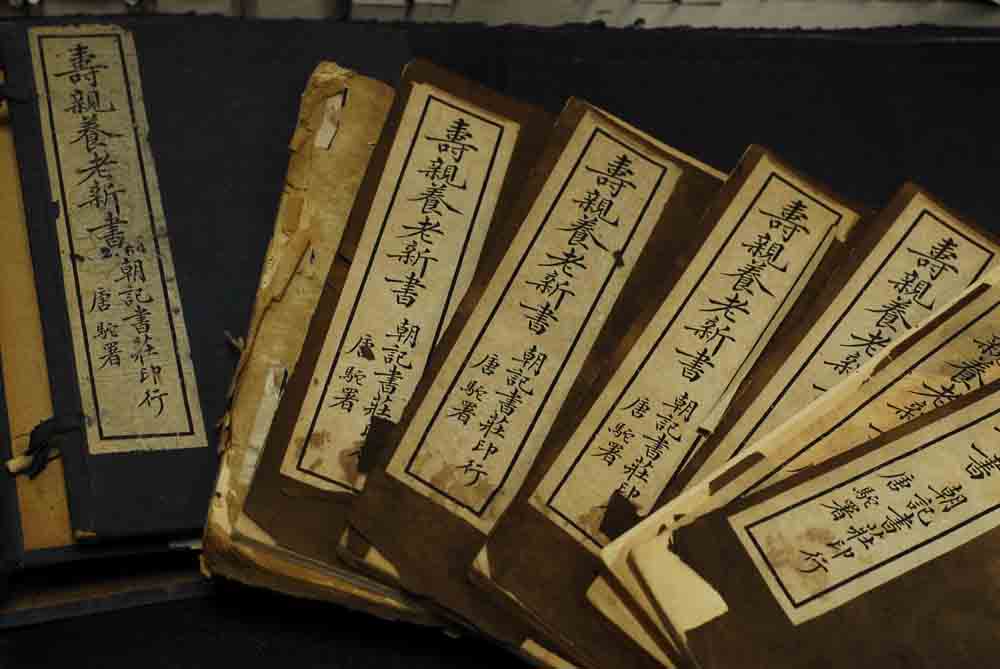 壽親養老新書
朝記書莊印行
唐駝署
壽親養老新書
朝記書莊印
唐駝署
壽親養老新書
朝記書莊印行
唐駝署
壽親養老新書
朝記書莊印
唐駝署
壽親養老新
親養老新
書
朝記書莊印行
唐駝署